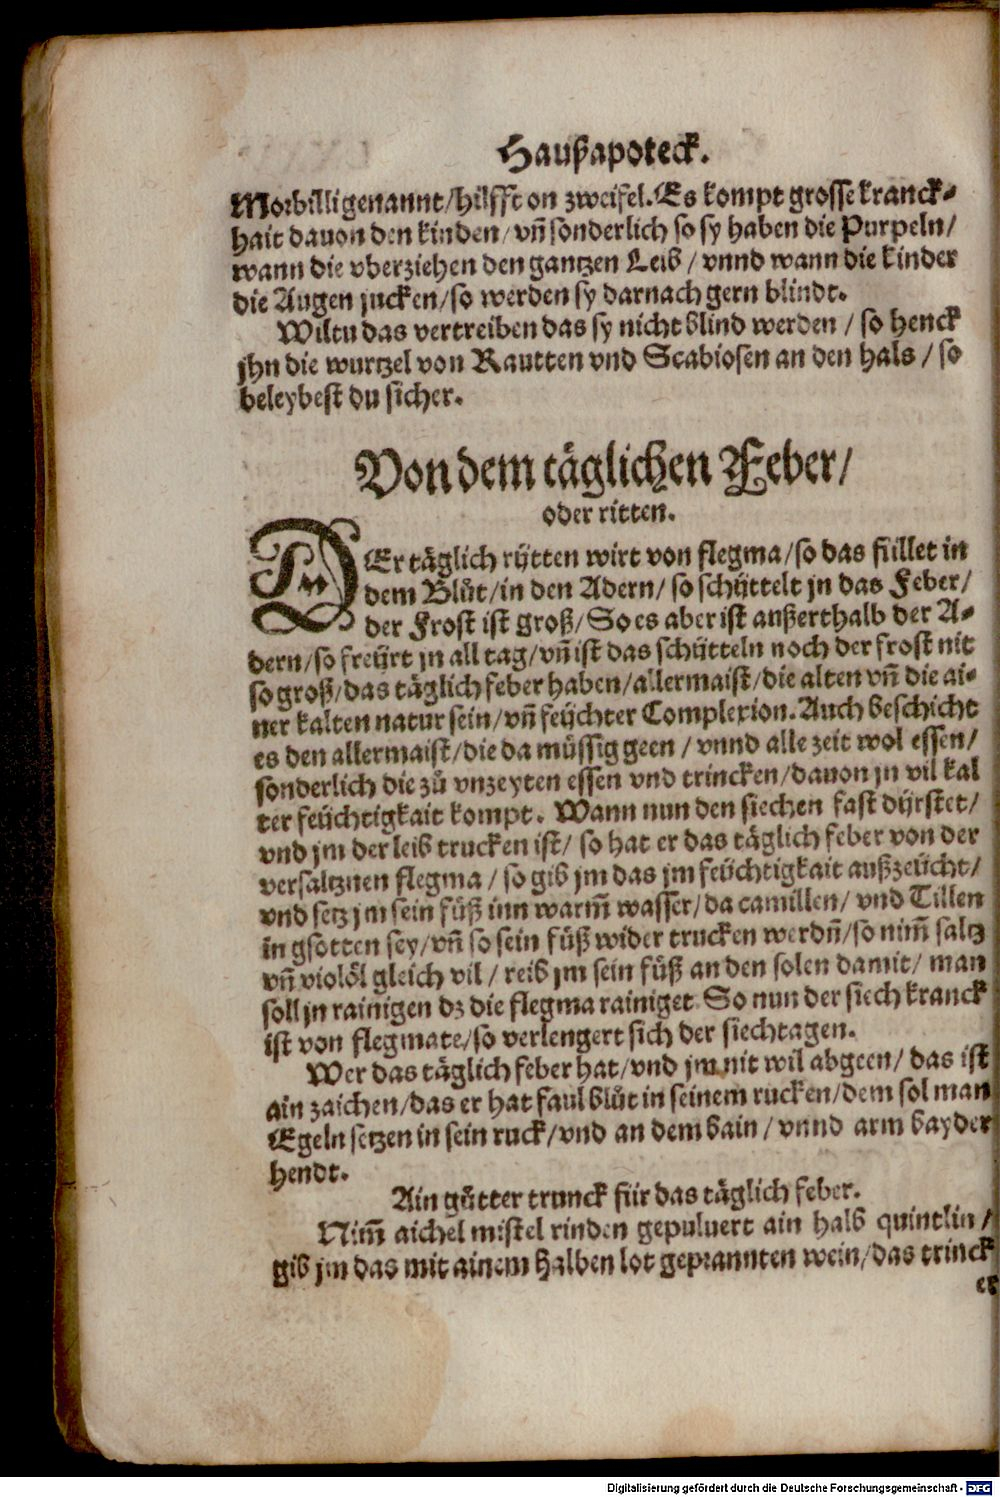 Haußapoteck.
Morbilli genannt/hilfft on zweifel. Es kompt grosse kranck-
hait dauon den kinden/vñ sonderlich so sy haben die Purpeln/
wann die vberziehen den gantzen Leib/vnnd wann die kinder
die Augen jucken/so werden sy darnach gern blindt.
Wiltu das vertreiben das sy nicht blind werden/so henck
jhn die wurtzel von Rautten vnd Scabiosen an den hals/so
beleybest du sicher.
Von dem täglichen Feber/
oder ritten.
DEr täglich rytten wirt von flegma/so das füllet in
dem Blůt/in den Adern/so schyttelt jn das Feber/
der Frost ist groß/So es aber ist außerthalb der A-
dern/so freürt jn all tag/vñ ist das schütteln noch der frost nit
so groß/das täglich feber haben/allermaist/die alten vñ die ai-
ner kalten natur sein/vñ feüchter Complexion. Auch beschicht
es den allermaist/die da müssig geen/vnnd alle zeit wol essen/
sonderlich die zů vnzeyten essen vnd trincken/dauon jn vil kal
ter feüchtigkait kompt. Wann nun den siechen fast dürstet/
vnd jm der leib trucken ist/so hat er das täglich feber von der
versaltznen flegma/so gib jm das jm feüchtigkait außzeücht/
vnd setz jm sein füß inn warm̃ wasser/da camillen/vnd Tillen
in gsotten sey/vñ so sein füß wider trucken werdñ/so nim̃ saltz
vñ violöl gleich vil/reib jm sein füß an den solen damit/man
soll jn rainigen dz die flegma rainiget. So nun der siech kranck
ist von flegmate/so verlengert sich der siechtagen.
Wer das täglich feber hat/vnd jm nit wil abgeen/das ist
ain zaichen/das er hat faul blůt in seinem rucken/dem sol man
Egeln setzen in sein ruck/vnd an dem bain/vnnd arm bayder
hendt.
Ain gůtter trunck für das täglich feber.
Nim̃ aichel mistel rinden gepuluert ain halb quintlin/
gib jm das mit ainem halben lot geprannten wein/das trinck
er
Digitalisierung gefördert durch die Deutsche Forschungsgemeinschaft - DFG